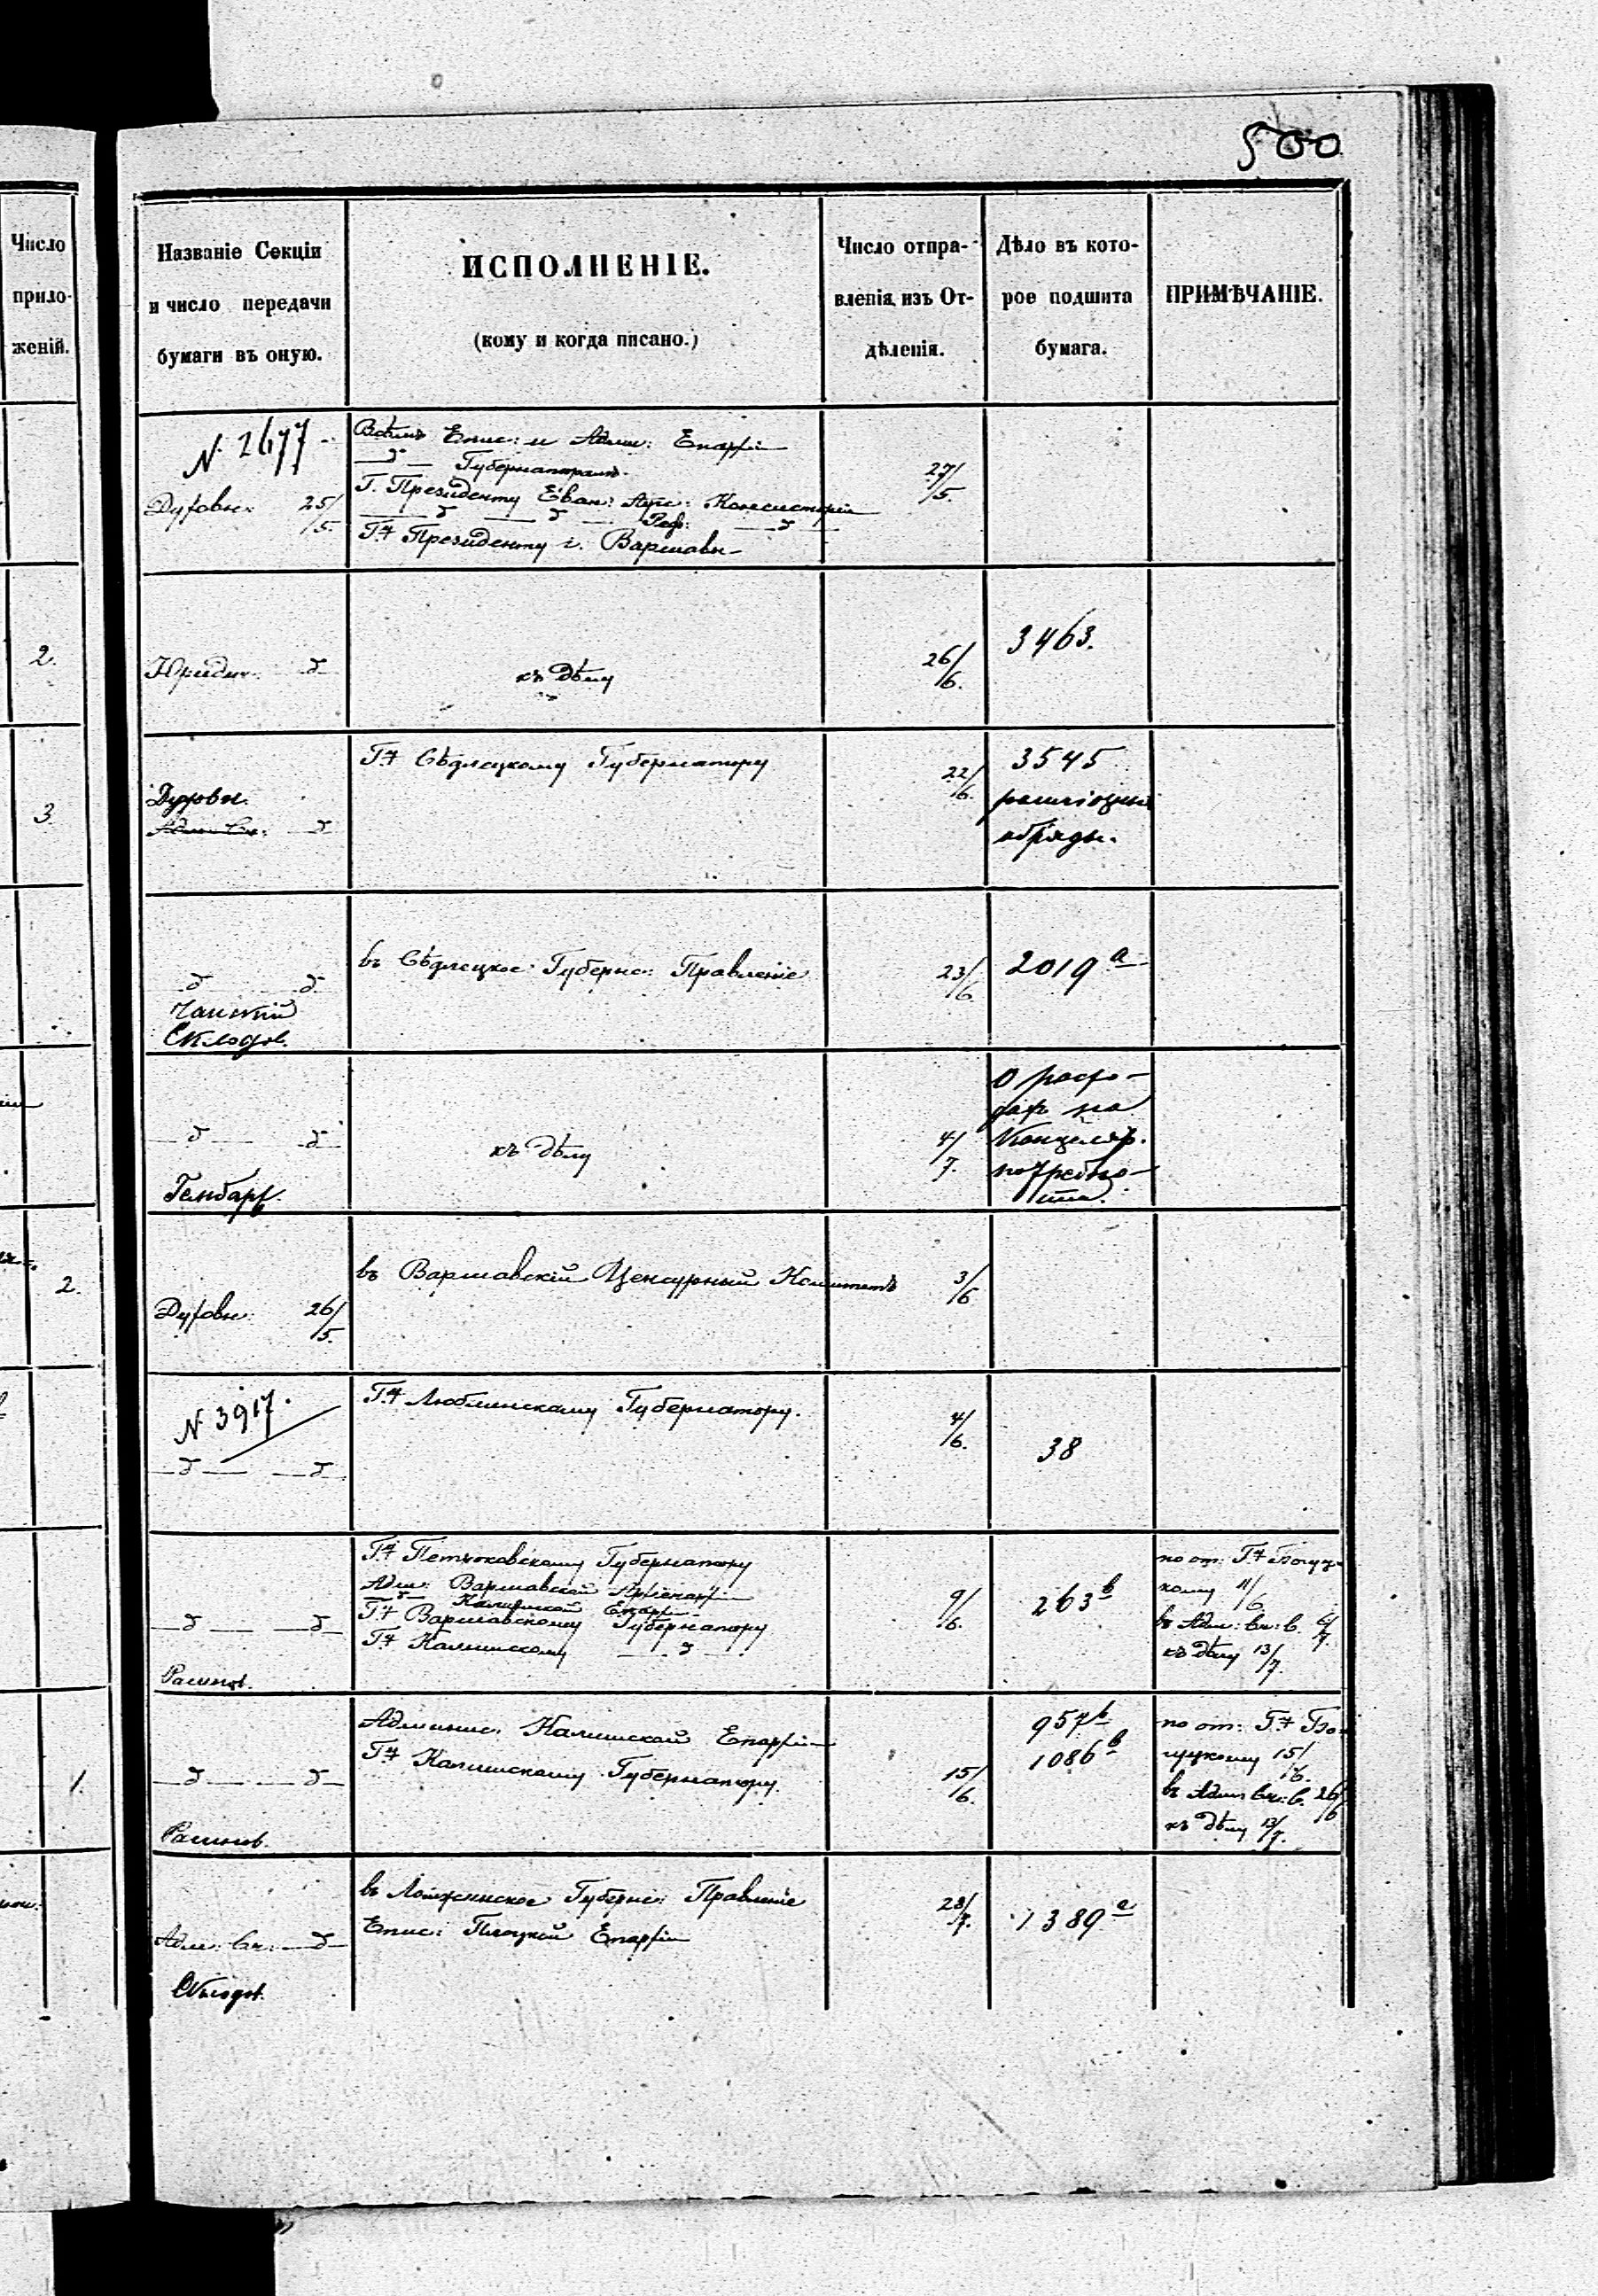 500
Число
прило-
женій.
Названіе Секціи
и число передачи
бумаги въ оную.
ИСПОЛНЕНІЕ.
(кому и когда писано.)
Число отпра-
вленія изъ От-
дѣленія.
Дѣло въ кото-
рое подшита
бумага.
ПРИМѢЧАНІЕ.
N. 2677
Духовн: 25/5.
Всѣмъ Епис: и Адми: Епархіи
д Губернаторамъ.
Г. Президенту Еван: Аугс: Консисторіи
д д Реф: д
Гну Президенту г. Варшавы
27/5.
2.
Юридич: д
къ дѣлу
26/6.
3463.
3.
Духовн.
д
Гну Сѣдлецкому Губернатору
22/6.
3545
религіозные
обряды.
д д
Склодов.
въ Сѣдлецкое Губернс: Правленіе
23/6.
2019 а
д д
Гембарж.
къ дѣлу
4/7.
О расхо-
дах на
Канцеляр.
потребно-
сти.
2.
Духовн: 26/5.
въ Варшавскій Цензурный Комитетъ
3/6
N 3917.
д д
Гну Люблинскому Губернатору.
4/6.
38
д д
Гну Петроковскому Губернатору
Адм: Варшавской Архіепархіи
д Калишской Епархіи
Гну Варшавскому Губернатору
Гну Калишскому д
9/6.
263 b
по от: Гну
кому 11/6
въ Адм: Вч: С. 6/7.
къ дѣлу 13/7.
1.
д д
Админис. Калишской Епархіи
Гну Калишскому Губернатору.
15/6.
957 b
1086 b
по от: Гну
15/6.
въ Адм: Вч: С. 26/6
къ дѣлу 13/7.
д
Склодов.
въ Ломжинское Губернс: Правленіе
Епис: Плоцкой Епархіи
28/7.
1389 а